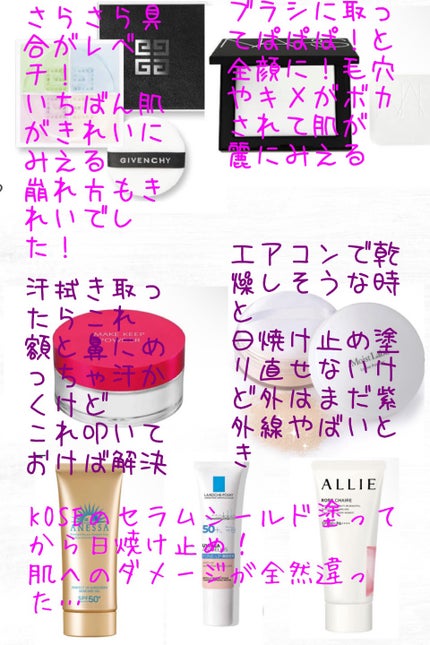 さらさら具
合がレベ
チ！
いちばん肌
がきれいに
みえる
崩れ方もき
れいでし
た！
GIVENCHY
ブラシに取っ
てぱぱぱ！と
全顔に！毛穴
やキメがボカ
されて肌が
麗にみえる
汗拭き取っ
たらこれ
額と鼻にめ
っちゃ汗か
くけど
これ叩いて
おけば解決
MAKE KEEP
POWDER
エアコンで乾
燥しそうな時
と
日焼け止め塗
り直せないけ
ど外はまだ紫
外線やばいと
き
Moist Labo
KOSEのセラムシールド塗って
から日焼け止め！
肌へのダメージが全然違っ
た…
ANESSA
SPF50+
LA ROCHE-POSAY
50+
ALLIE